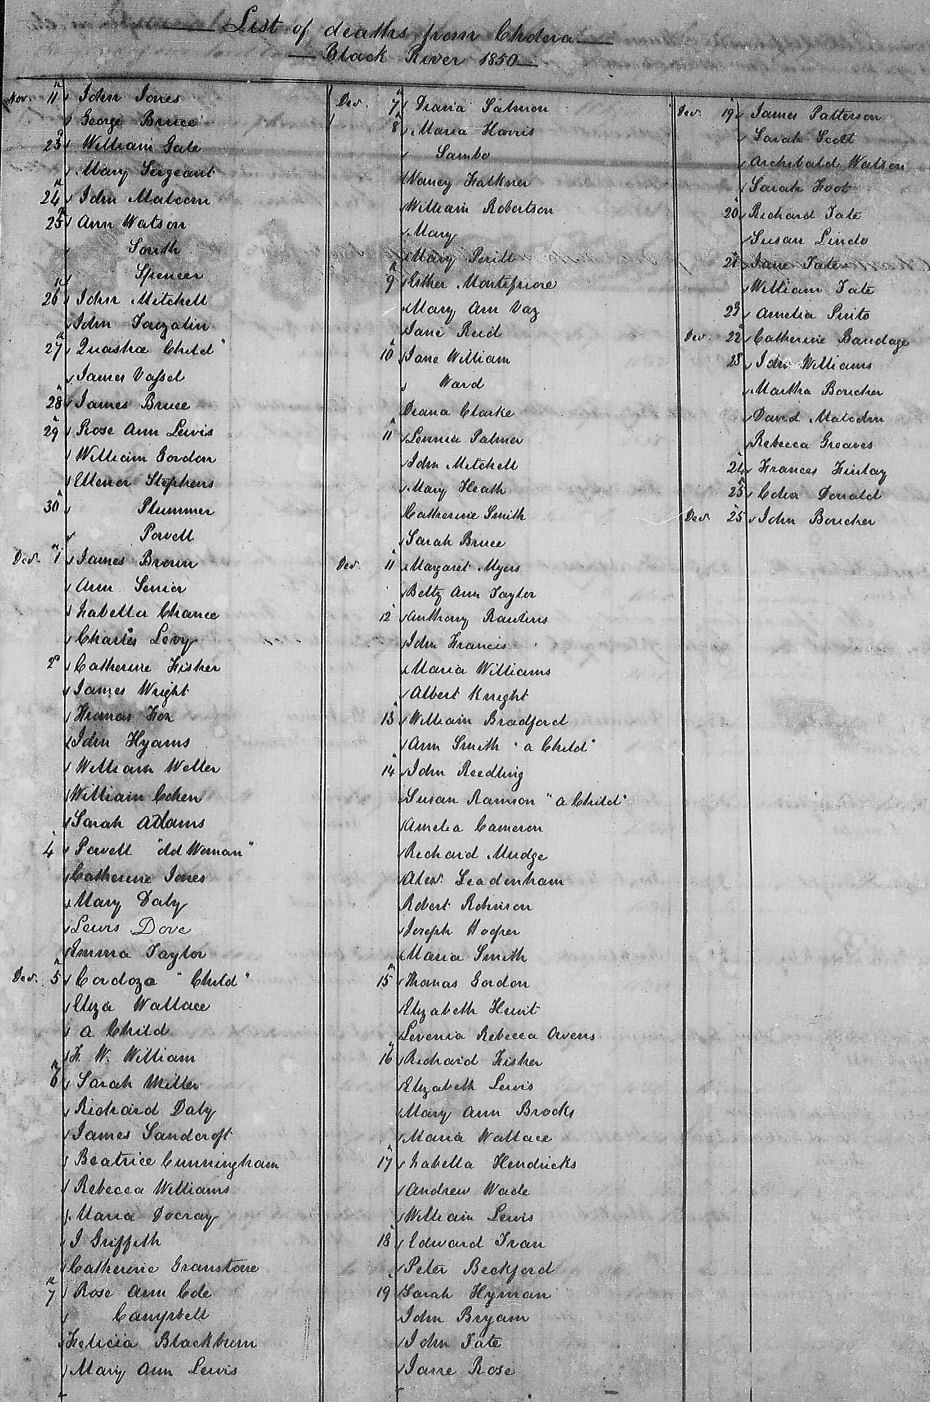 List of deaths from Cholera
Black River 1850
Nov. 11 John Jones
George Bruce
23 William Gale
Mary Sergeant
24 John Malcom
25 Ann Watson
South
Spencer
26 John Mitchell
John
27 Quashie Child"
James Vassel
28 James Bruce
29 Rose Ann Lewis
William Gordon
Ellenor Stephens
30 Plummer
Powell
Dec. 1 James Brown
Ann Senior
Isabella Chance
Charles Levy
2 Catherine Fisher
James Wright
Thomas Fox
John Hyams
William Weller
William Cohen
Sarah Adams
4 Powell "old Woman"
Catherine Jones
Mary Daly
Lewis Dove
Emma Taylor
Dec. 5 Cordoza "Child"
Eliza Wallace
a Child
F. W. William
6 Sarah Miller
Richard Daly
James Sandcroft
Beatrice Cunningham
Rebecca Williams
Maria Docray
J Griffith
Catherine Granstone
7 Rose Ann Cole
Campbell
Felicia Blackburn
Mary Ann Lewis
Dec. 7 Diana Salmon
8 Maria Harris
Sambo
Nancy Falkner
William Robertson
Mary
Mary
9 Esther Montefiore
Mary Ann Vaz
Jane Reid
10 Jane William
Ward
Diana Clarke
11 Palmer
John Mitchell
Mary Heath
Catherine Smith
Sarah Bruce
Dec. 11 Margaret Myers
Betty Ann Taylor
12 Anthony Rawlins
John Francis
Maria Williams
Albert Knight
13 William Bradford
Ann Smith "a Child"
14 John Reedling
Susan Ramson "a Child"
Amelia Cameron
Richard Mudge
Alexr. Leadenham
Robert Robinson
Joseph Hooper
Maria Smith
15 Thomas Gordon
Elizabeth Hunt
Levenia Rebecca Owens
16 Richard Fisher
Elizabeth Lewis
Mary Ann Brooks
Maria Wallace
17 Isabella Hendricks
Andrew Wade
William Lewis
18 Edward Ivan
Peter Beckford
19 Sarah Hyman
John Bryam
John Tate
Jane Rose
Dec. 19 James Patterson
Sarah Scott
Archibald Watson
Sarah Foot
20 Richard Tate
Susan Lindo
21 Jane Tate
William Tate
23 Amelia Pinto
Dec. 22 Catherine Bandage
23 John Williams
Martha Boucher
David Malcolm
Rebecca Greaves
24 Frances Finlay
25 Celia Donald
Dec. 25 John Boucher